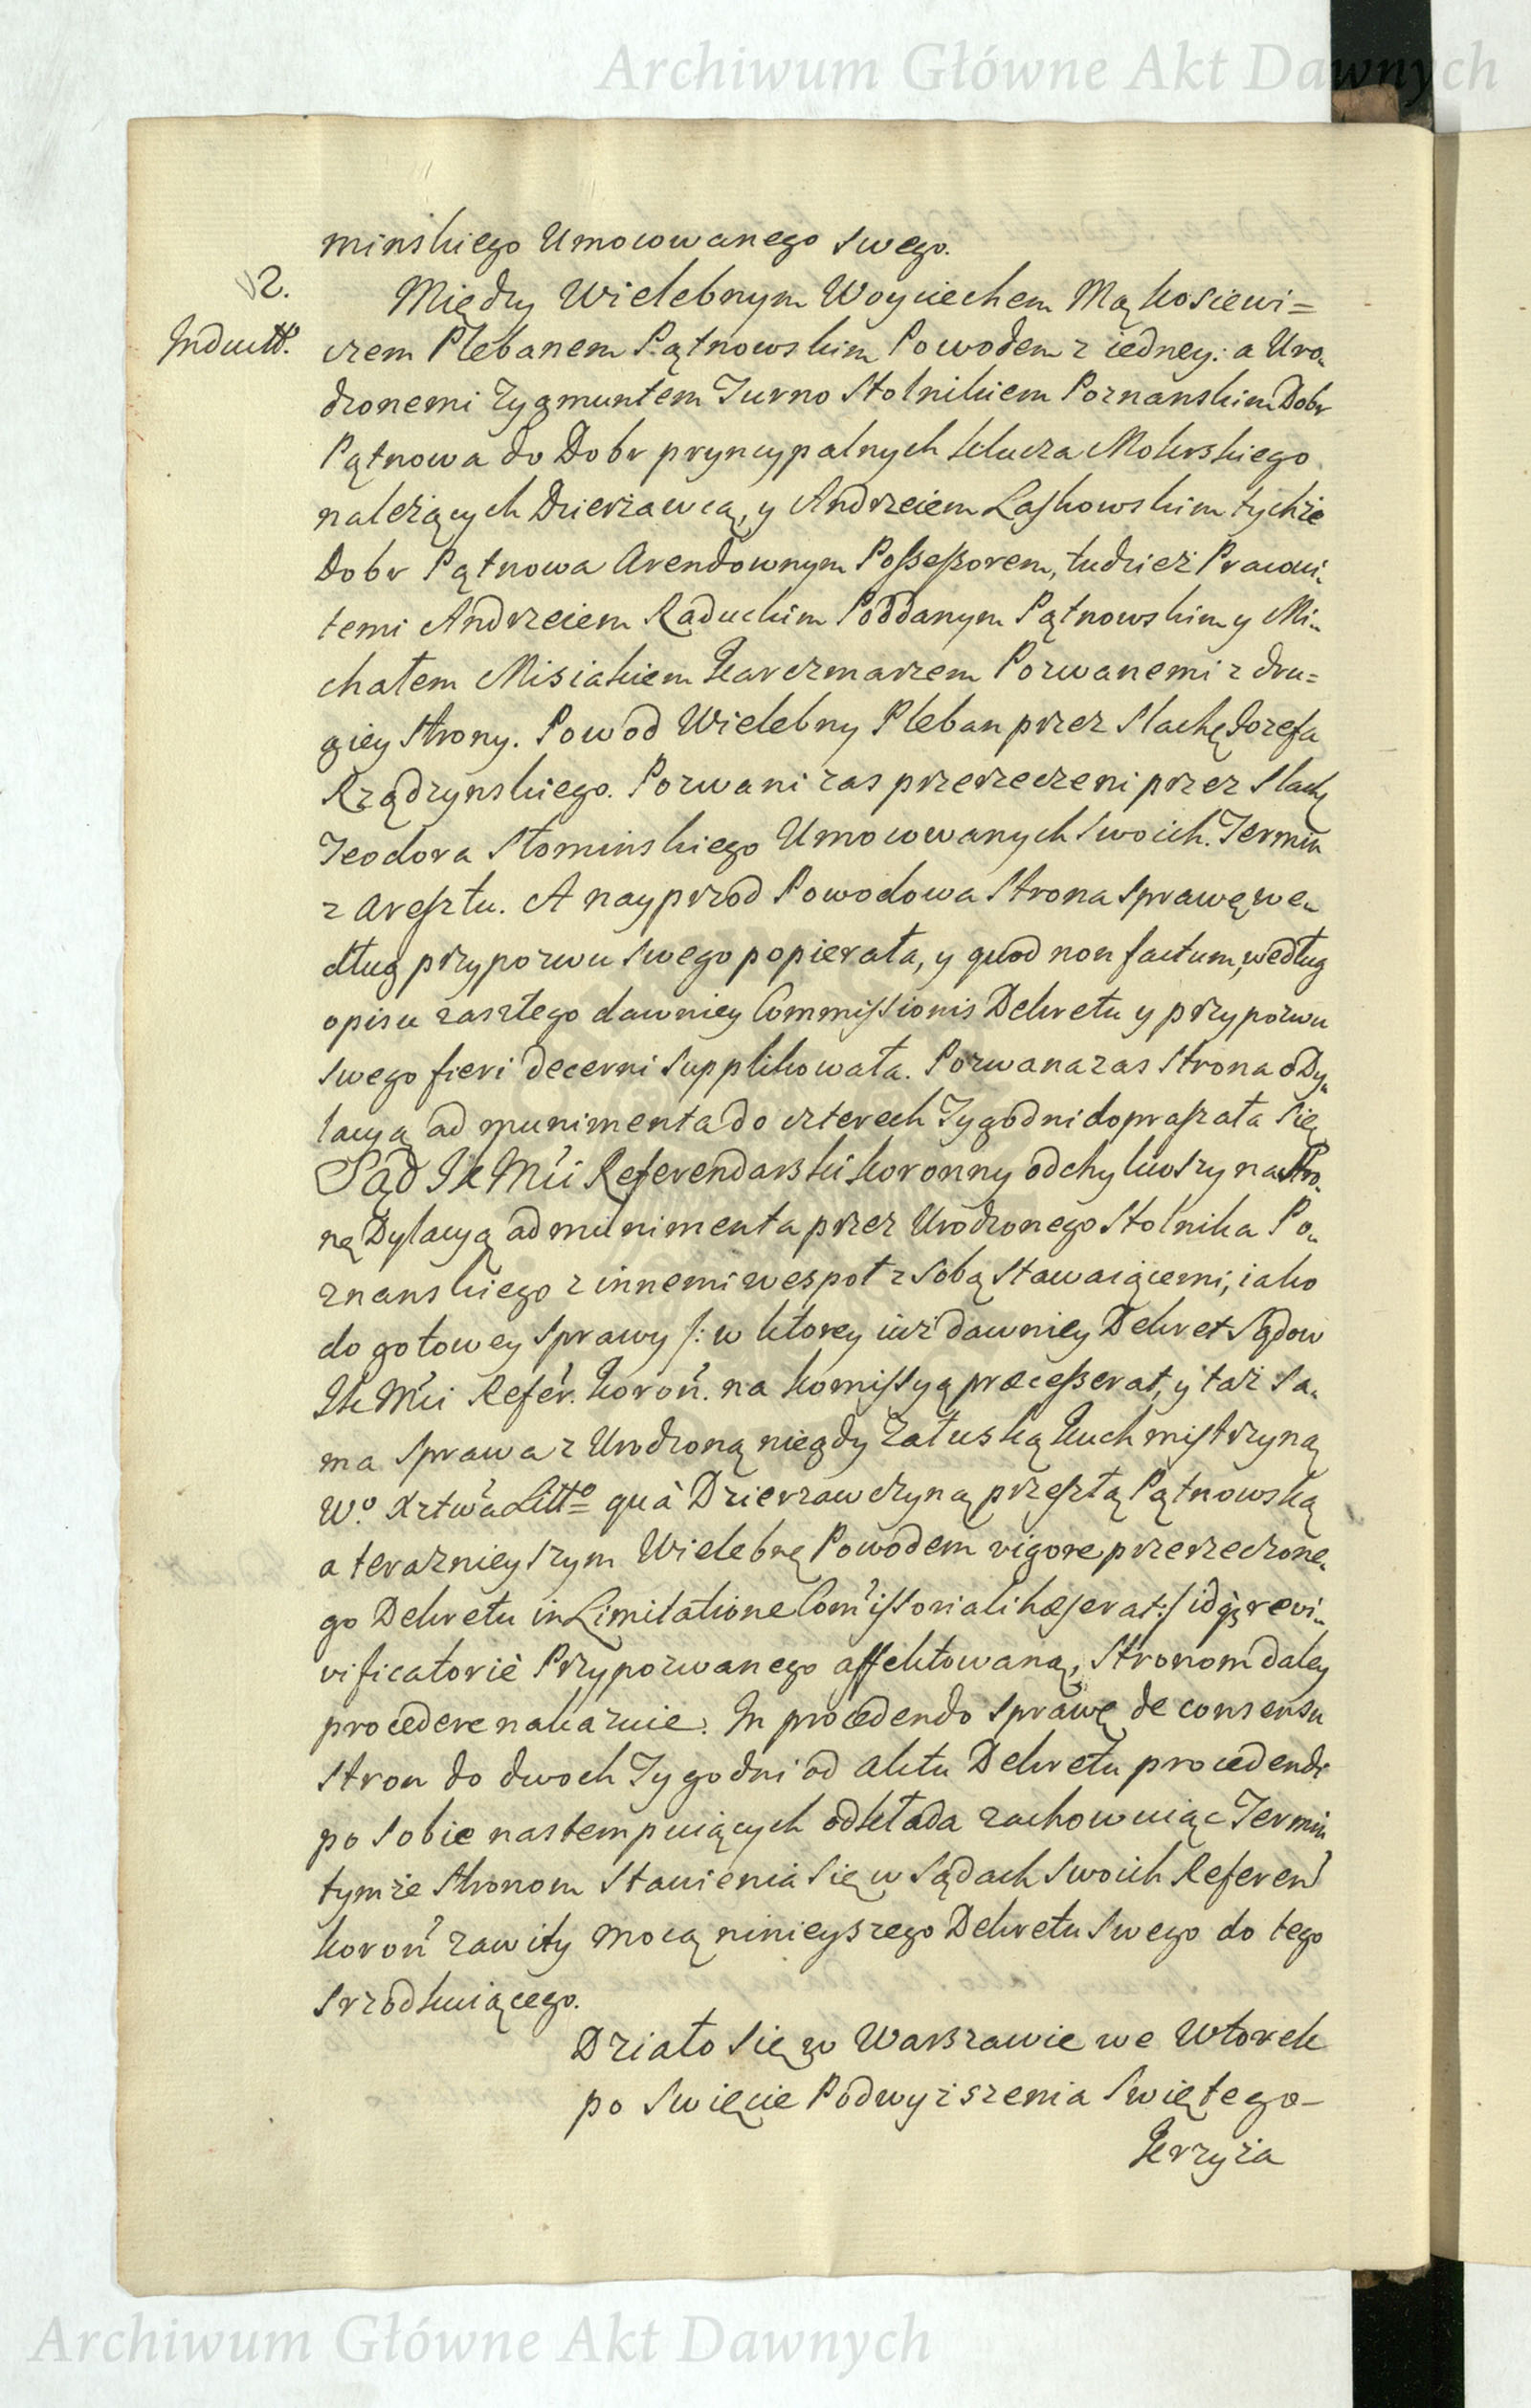 Archiwum Główne Akt Dawnych
minskiego Umocowanego swego.
12.
Między Wielebnym Woyciechem Mąkosiewi=
Inductt.
czem Plebanem Pątnowskim Powodem z iedney: a Uro-
dzonemi Zygmuntem Turno Stolnikiem Poznanskim Dobr
Pątnowa do Dobr pryncypalnych klucza Mokrskiego
należących Dzierżawcą, y Andrzeiem Laskowskim tychże
Dobr Pątnowa Arendownym Possessorem, tudzież Pracowi-
temi Andrzeiem Raduckim Poddanym Pątnowskim y Mi-
chałem Misiakiem Karczmarzem Pozwanemi z dru=
giey strony. Powod Wielebny Pleban przez Slachę Jozefa
Rządzynskiego. Pozwani zas przerzeczeni przez Slachę
Teodora Słominskiego Umocowanych swoich. Termin
z Aresztu. A nayprzod Powodowa Strona sprawę we-
dług przypozwu swego popierała, y quod non factum, według
opisu zaszłego dawniey Commissionis Dekretu y przypozwu
swego fieri decerni supplikowała. Pozwana zas Strona o Dy-
lacyą ad munimenta do czterech Tygodni dopraszała się
Sąd JK Mci Referendarski koronny odchyliwszy na stro-
nę Dylacyą ad munimenta przez Urodzonego Stolnika Po-
znanskiego z innemi wespoł z sobą stawaiącemi, iako
do gotowey sprawy /: w ktorey iuż dawniey Dekret Sądow
JK Mci Refer. Koroń. na komissyą præcesserat, y taż sa-
ma sprawa z Urodzoną niegdy Załuską Kuchmistrzyną
W.o Xztwa Litto quà Dzierzawczyną przeszłą Pątnowską
a teraznieyszym Wielebnę Powodem vigore przerzeczone-
go Dekretu in Limitatione Commissoriali hæserat :/ idq; revi-
vificatoriè Przypozwanego affektowaną, Stronom daley
procedere nakazuie. In procedendo sprawę de consensu
stron do dwoch Tygodni od aktu Dekretu procedendi
po sobie nastempuiących odkłada zachowuiąc Termin
tymże Stronom Stawienia się w Sądach swoich Referend
koroń zawity mocą ninieyszego Dekretu swego do tego
srzodkuiącego.
Działo się w Warszawie we Wtorek
po Swięcie Podwyższenia Swiętego
Krzyża
Archiwum Główne Akt Dawnych